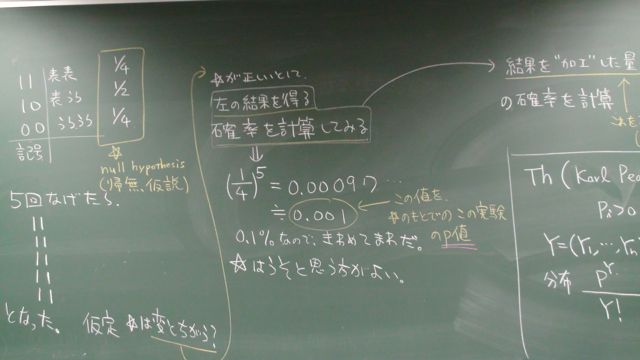 11 表表 1/4
10 表うら 1/2
00 うらうら 1/4
記号
☆
null hypothesis
(帰無仮説)
5回なげたら、
11
11
11
11
11
となった。 仮定☆は変とちがう?
☆が正しいとして、
左の結果を得る
確率を計算してみる
⇓
(1/4)^5 = 0.00097…
≒ 0.001
この値を、
☆のもとでの この実験
のp値
0.1%なので、きわめてまれだ。
☆はうそと思う方がよい。
結果を"加工"した量
の確率を計算
これを
Th (Karl Pea
Pi>0
Y=(Y1,…,Yn
分布 P^Y
Y!